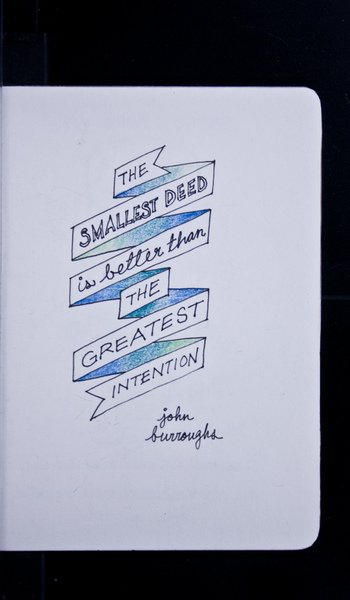 THE
SMALLEST DEED
is better than
THE
GREATEST
INTENTION
john
burroughs